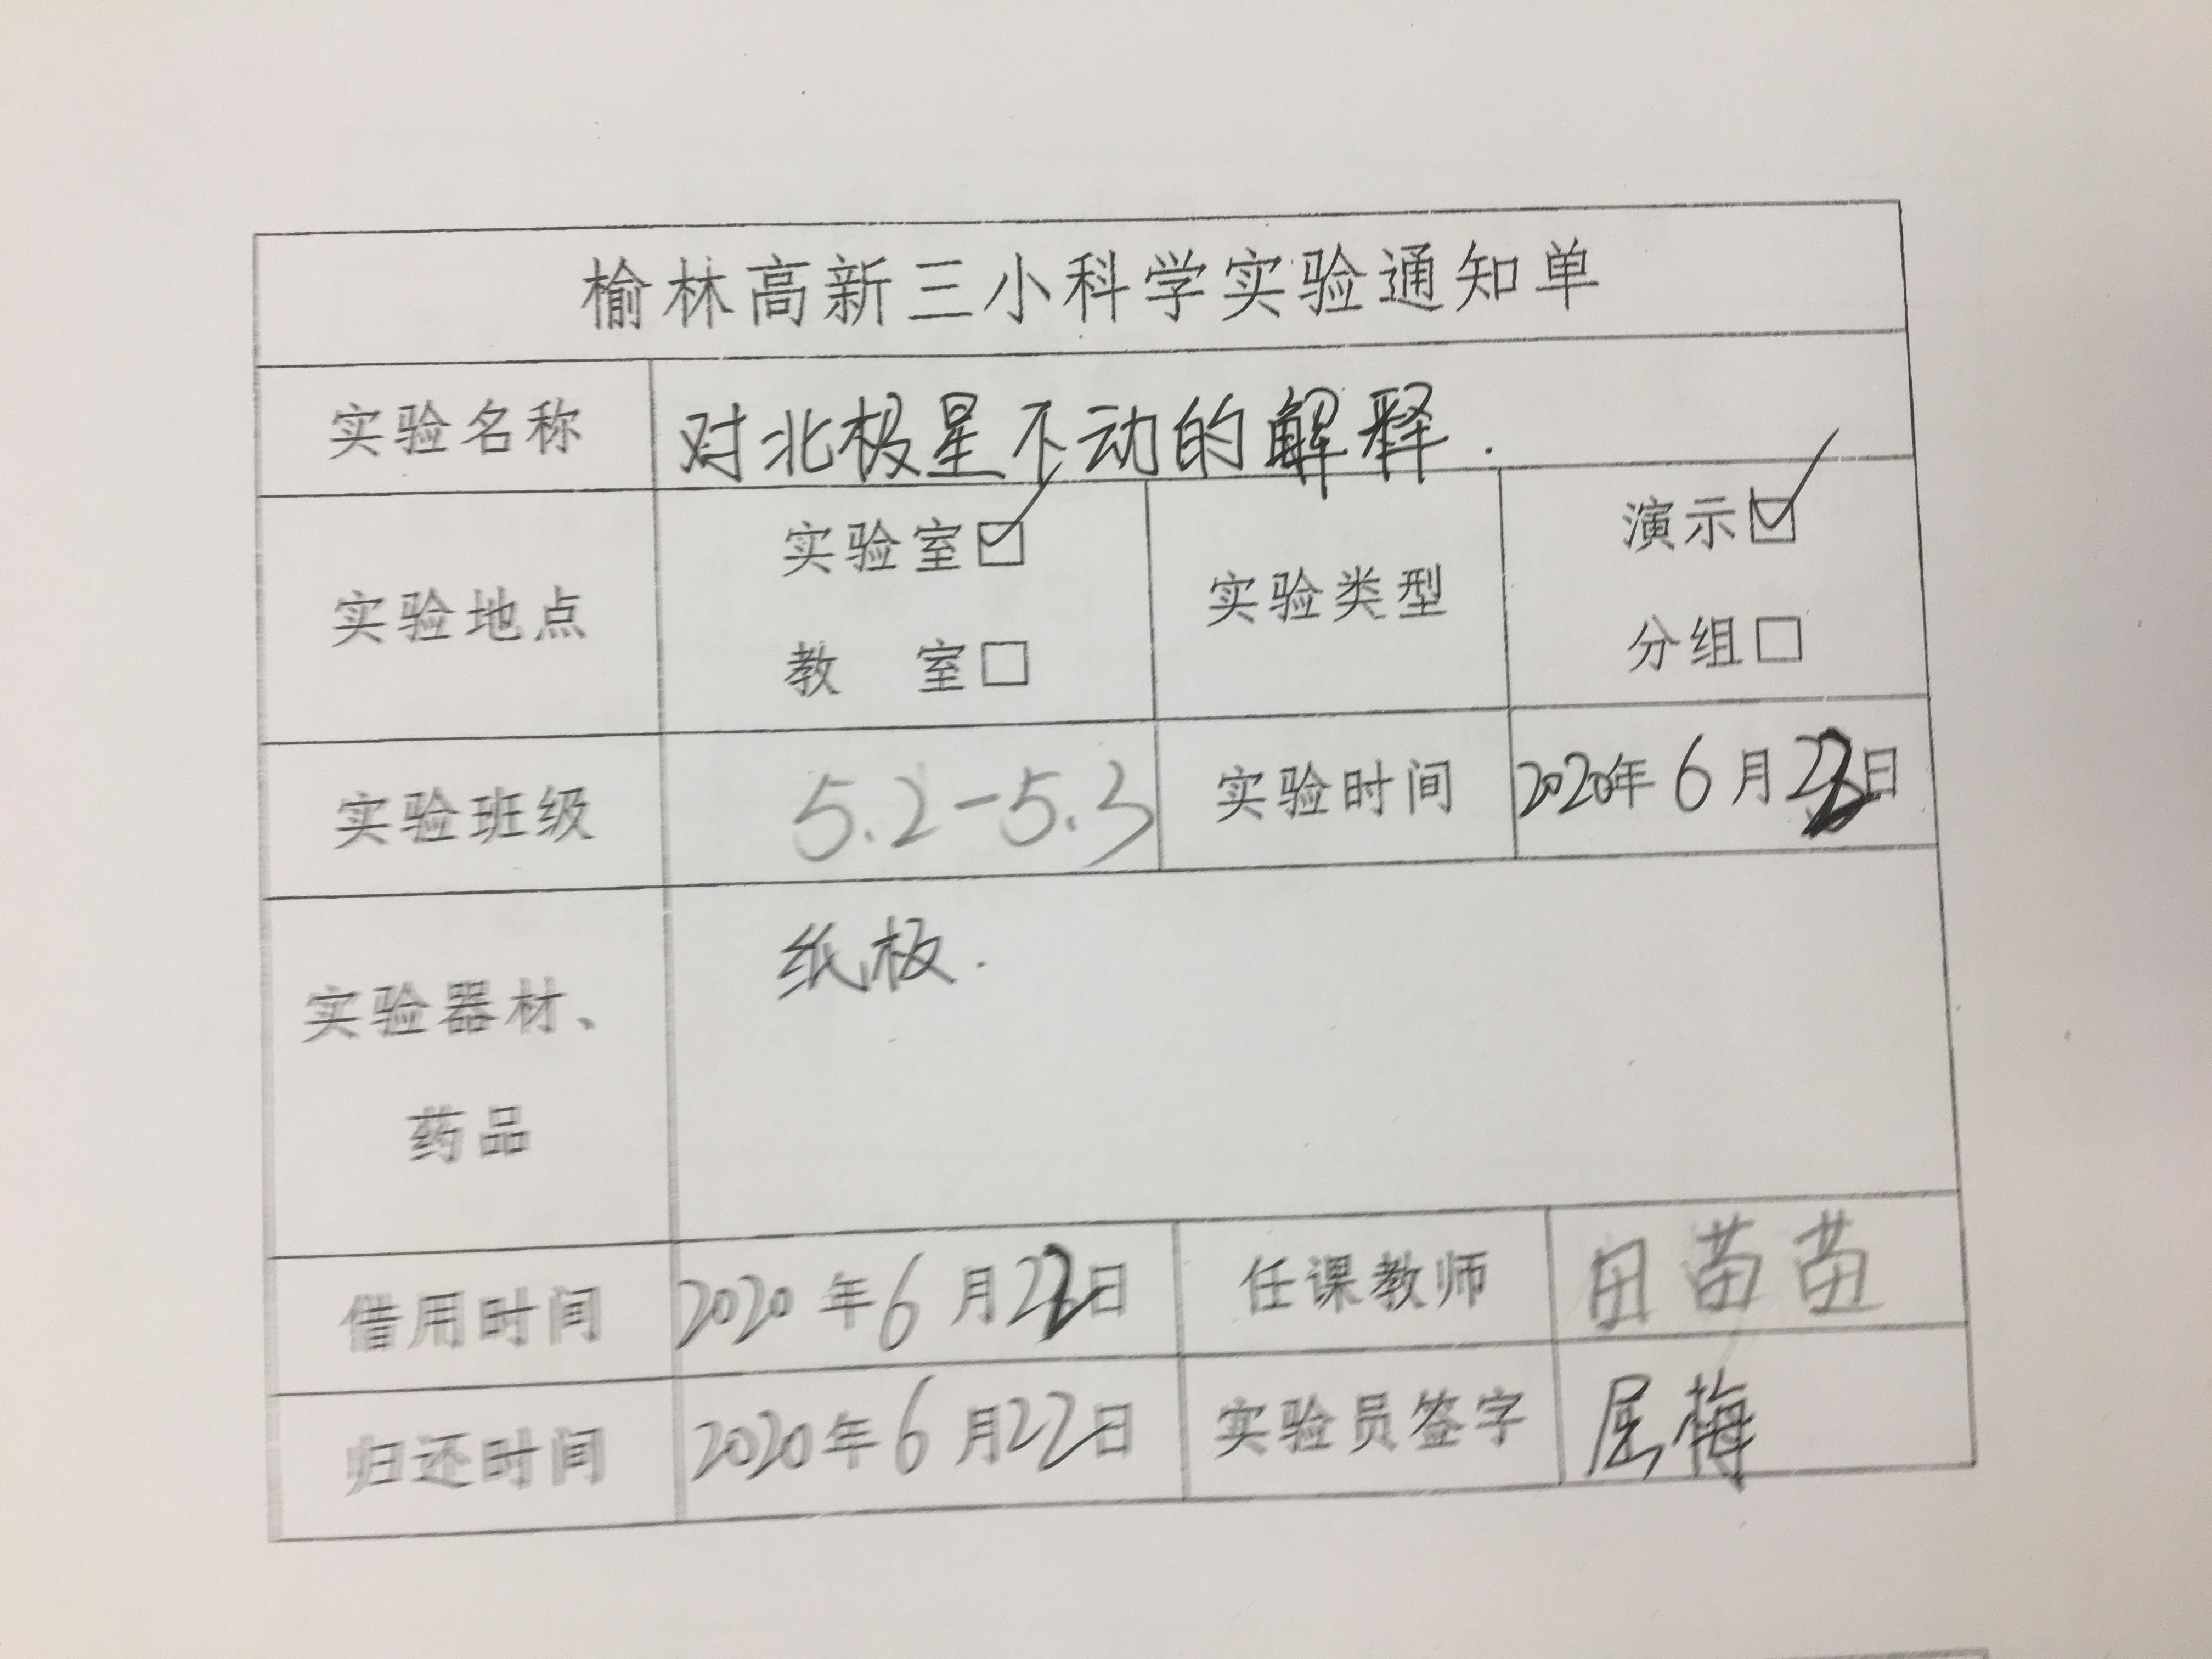 榆林高新三小科学实验通知单
实验名称 对北极星不动的解释.
实验地点 实验室☑ 教 室□ 实验类型 演示☑ 分组□
实验班级 5.2-5.3 实验时间 2020年6月22日
实验器材、药品 纸板.
借用时间 2020年6月22日 任课教师 田苗苗
归还时间 2020年6月22日 实验员签字 屈梅